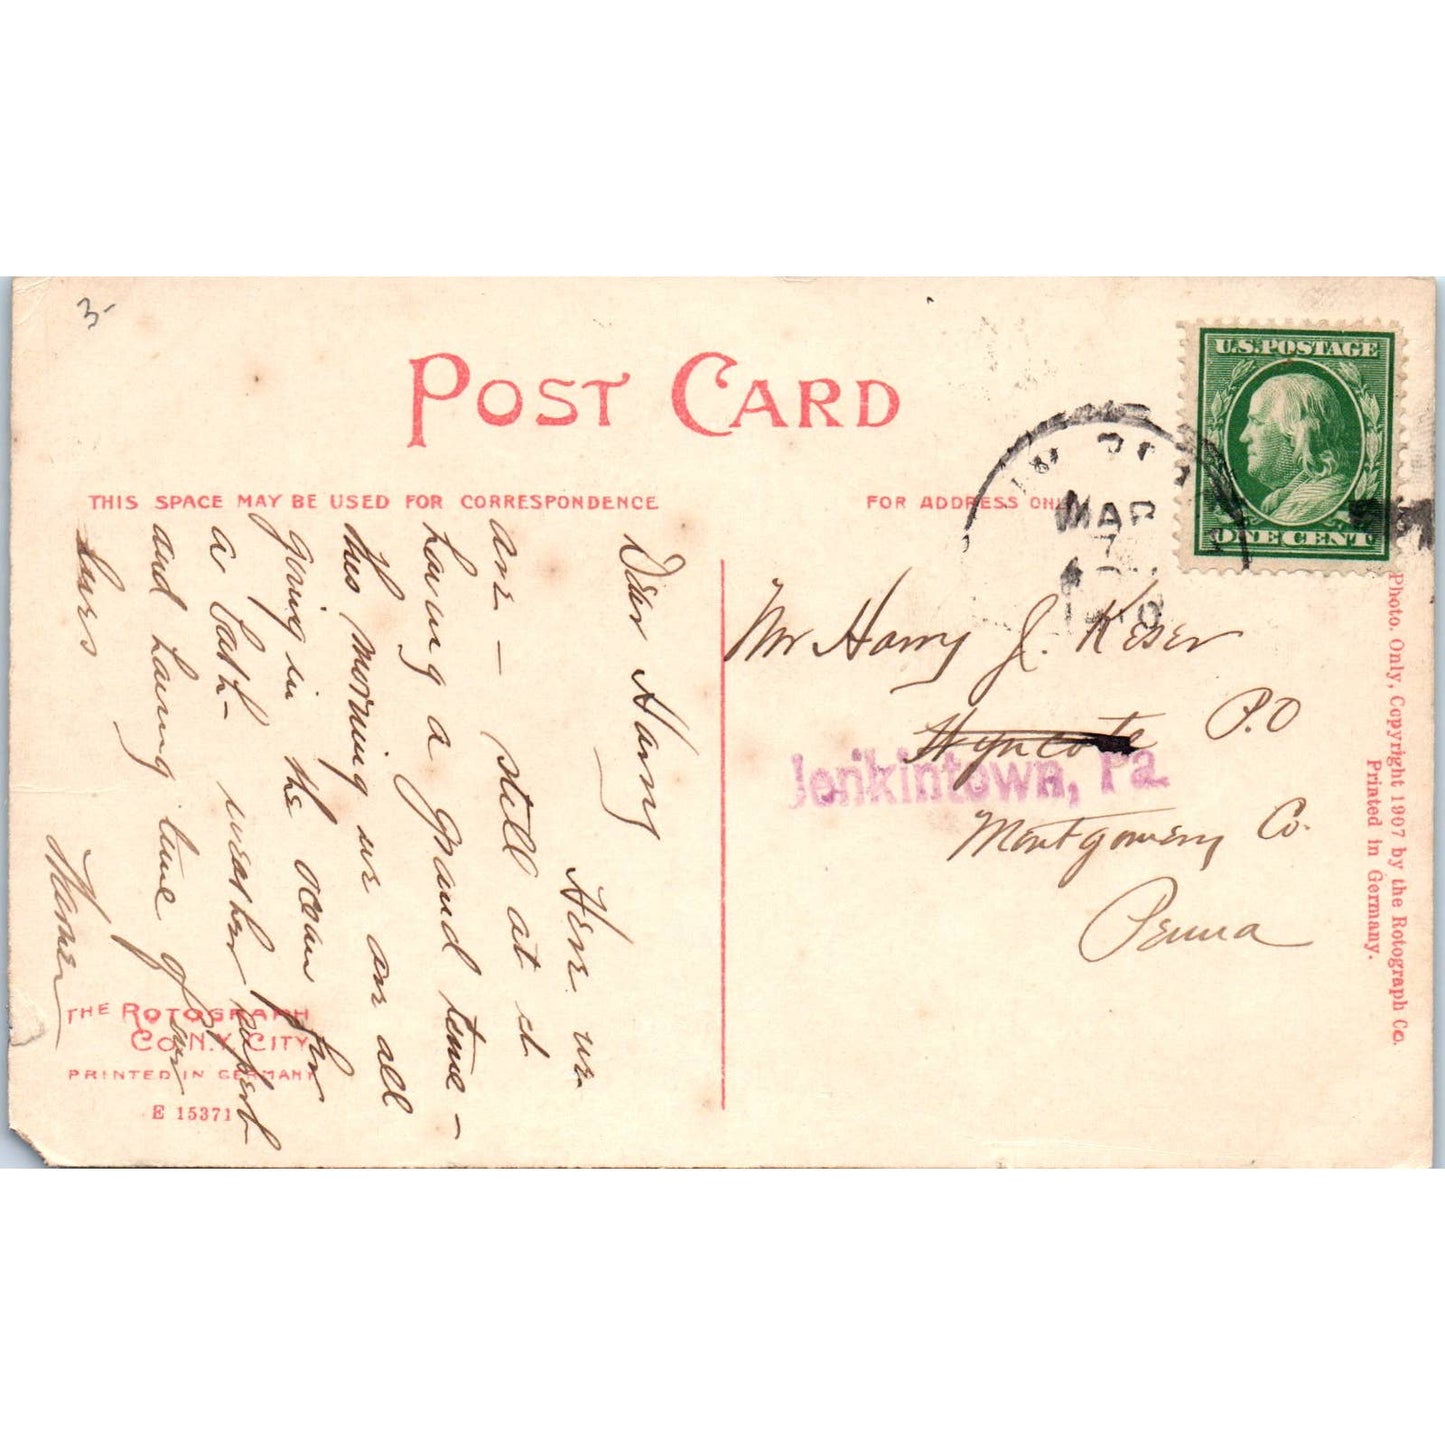 3-
POST CARD
THIS SPACE MAY BE USED FOR CORRESPONDENCE
FOR ADDRESS ONL
U.S. POSTAGE
ONE CENT
MAR
7
Dear Harry
Here we
are - still at it
having a grand time -
this morning we are all
going in the ocean for
a bath - weather perfect
and having time of our
lives
Mr Harry J. Keser
Wyncote P.O
Jenkintown, Pa.
Montgomery Co.
Penna
THE ROTOGRAPH
CO. N.Y. CITY
PRINTED IN GERMANY
E 15371
Photo. Only, Copyright 1907 by the Rotograph Co.
Printed in Germany.